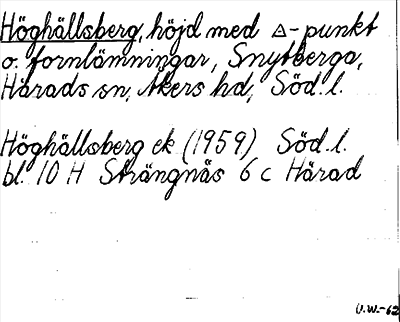 Höghällsberg, höjd med △-punkt
o. fornlämningar, Snytberga,
Härads sn, Åkers hd, Söd. l.
Höghällsberg ek (1959) Söd. l.
bl. 10 H Strängnäs 6 c Härad
U.W.-62